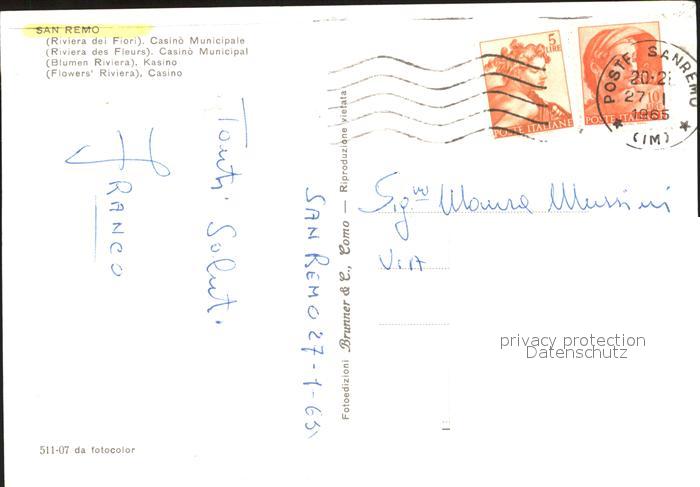 SAN REMO
(Riviera dei Fiori), Casinò Municipale
(Riviera des Fleurs), Casinò Municipal
(Blumen Riviera), Kasino
(Flowers' Riviera), Casino
5
LIRE
POSTE ITALIANE
10
POSTE ITALIANE
POSTE SANREMO
27 1
1965
(IM)
Tanti Saluti
FRANCO
SAN REMO 27-1-65
Fotoedizioni Brunner & C., Como — Riproduzione vietata
VIA
privacy protection
Datenschutz
511-07 da fotocolor